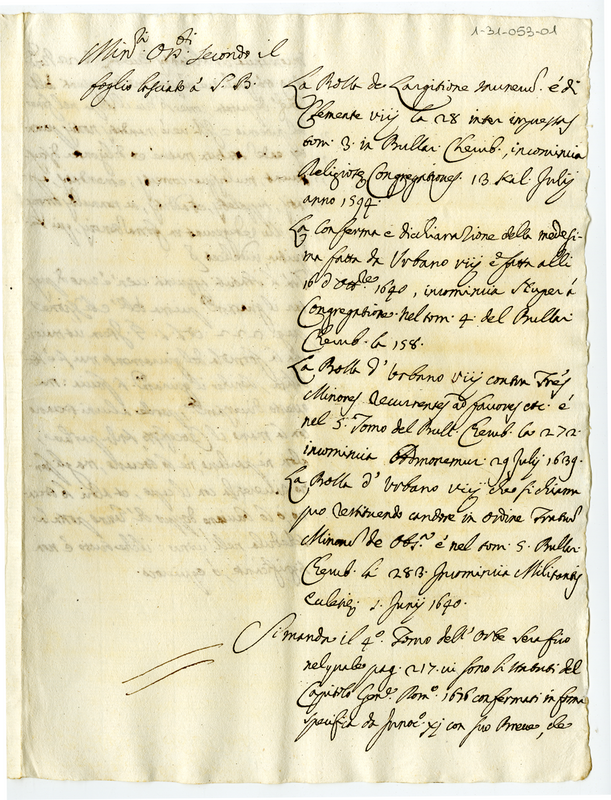 1-31-053-01
Min.ri Oss.ti secondo il
foglio lasciato á S. B.
La Bolla de Largitione munerũ é di
Clemente viij la 28 inter impressas
tom. 3. in Bullar. Cherub., incomincia
Religiosæ Congregationes. 13 Kal. Julij
anno 1594.
La conferma e dichiarazione della medesi-
ma fatta da Urbano viij è fatta alli
16 d'Ott.re 1640, incomincia Nuper á
Congregatione. nel tom. 4. del Bullar.
Cherub. la 158.
La Bolla d'Urbano viij contra Fr̃es
Minores recurrentes ad favores etc. é
nel 5. Tomo del Bull. Cherub. la 272.
incomincia Admonemur. 29 Julij 1639.
La Bolla d'Urbano viij che si chiama
pro restituendo candore in Ordine Fratrũ
Minorũ de Obs.a é nel tom. 5. Bullar.
Cherub. la 283. Incomincia Militantis
Ecclesiæ. 1. Junij 1640.
Si manda il 4.o Tomo dell'Orbe Serafico
nel quale pag. 217. vi sono li statuti del
Capitolo Gen.le Rom.o 1676 confermati in forma
specifica da Innoc.o xj con suo Breve, che